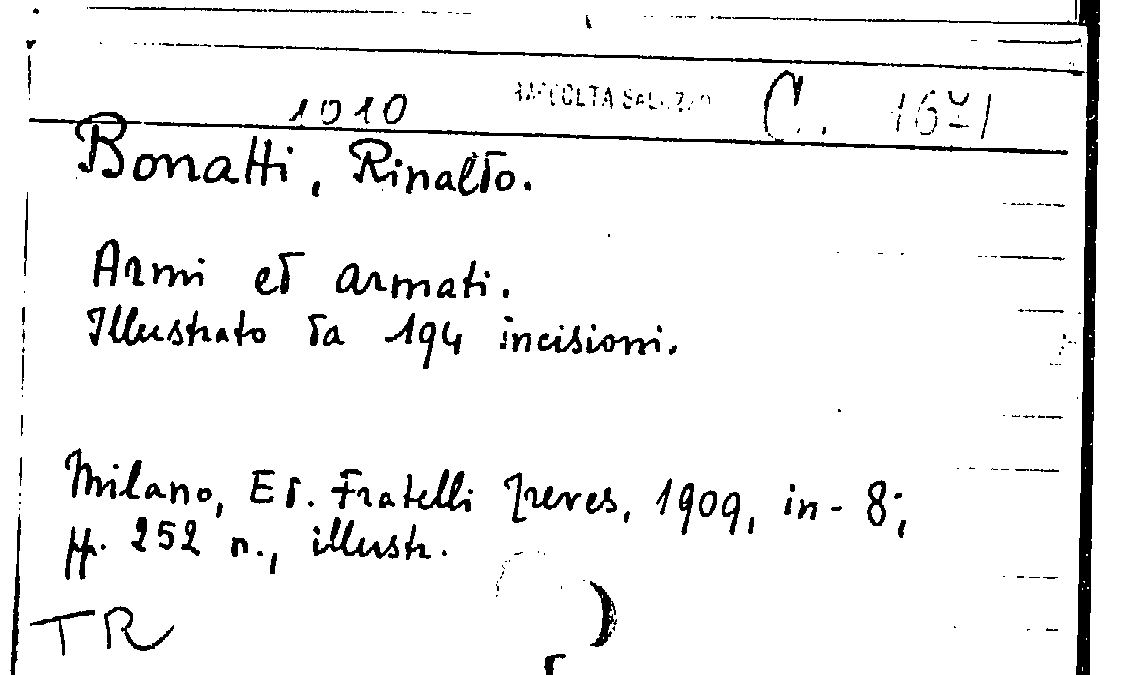 1010 RACCOLTA SALUZZO C. 1671
Bonatti, Rinaldo.
Armi ed armati.
Illustrato da 194 incisioni.
Milano, Ed. Fratelli Treves, 1909, in-8°;
pp. 252 n., illustr.
TR